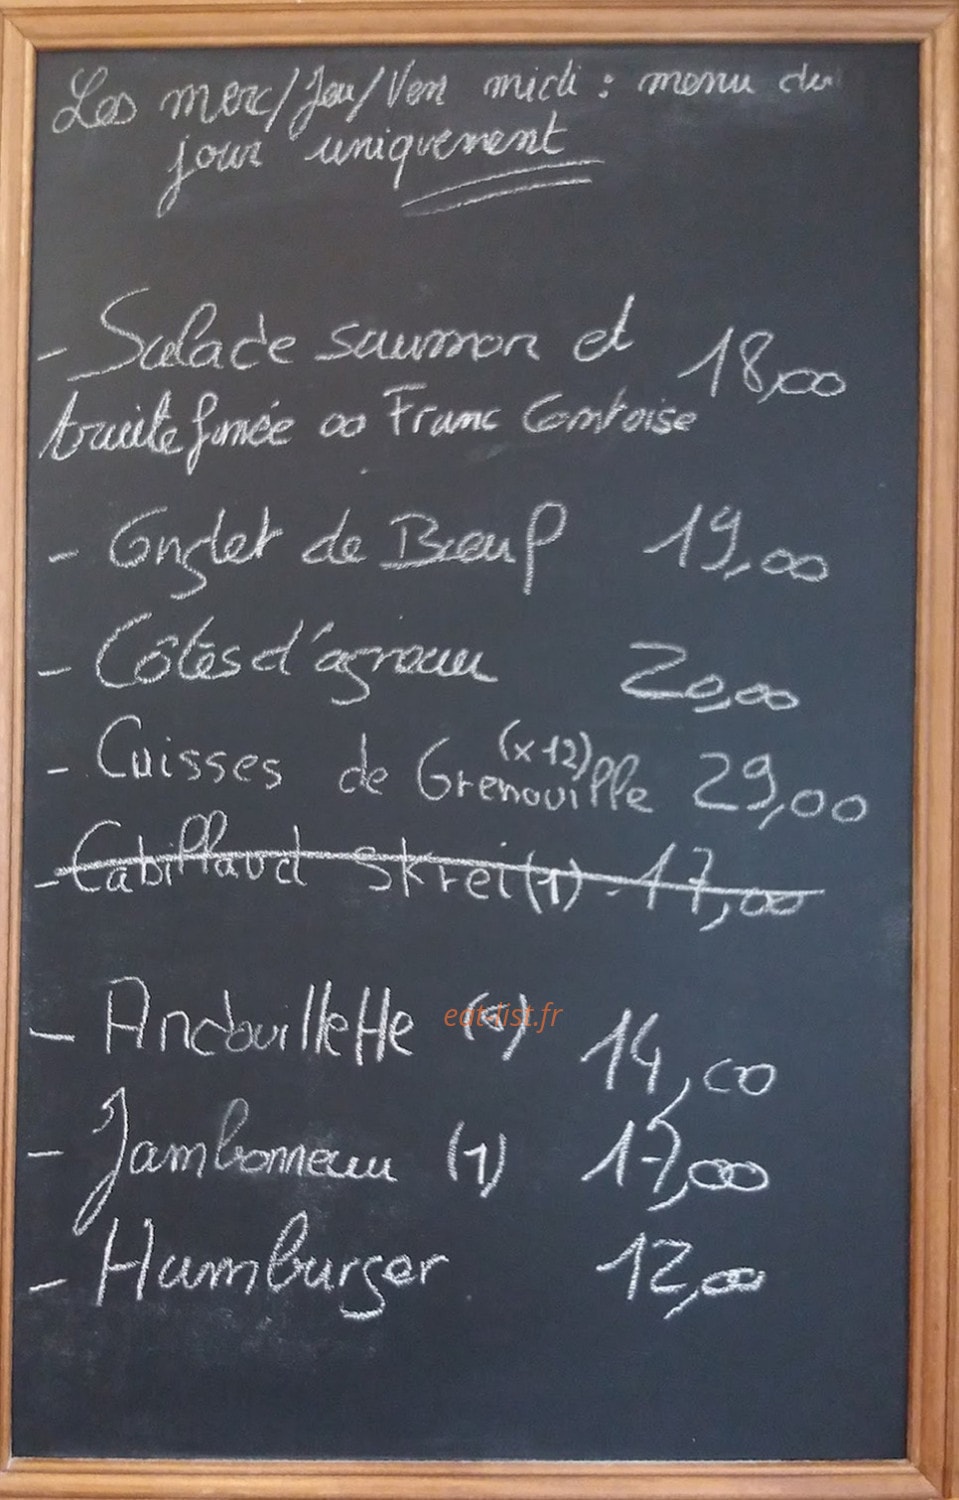 Les merc/Jeu/Ven midi : menu du
jour uniquement
- Salade saumon et 18,00
truite fumée ou Franc Comtoise
- Onglet de Bœuf 19,00
- Côtes d'agneau 20,00
- Cuisses de Grenouille (x12) 29,00
- Cabillaud Skrei (1) - 17,00
- Andouillette 14,00
eat-list.fr
- Jambonneau (1) 17,00
- Hamburger 12,00